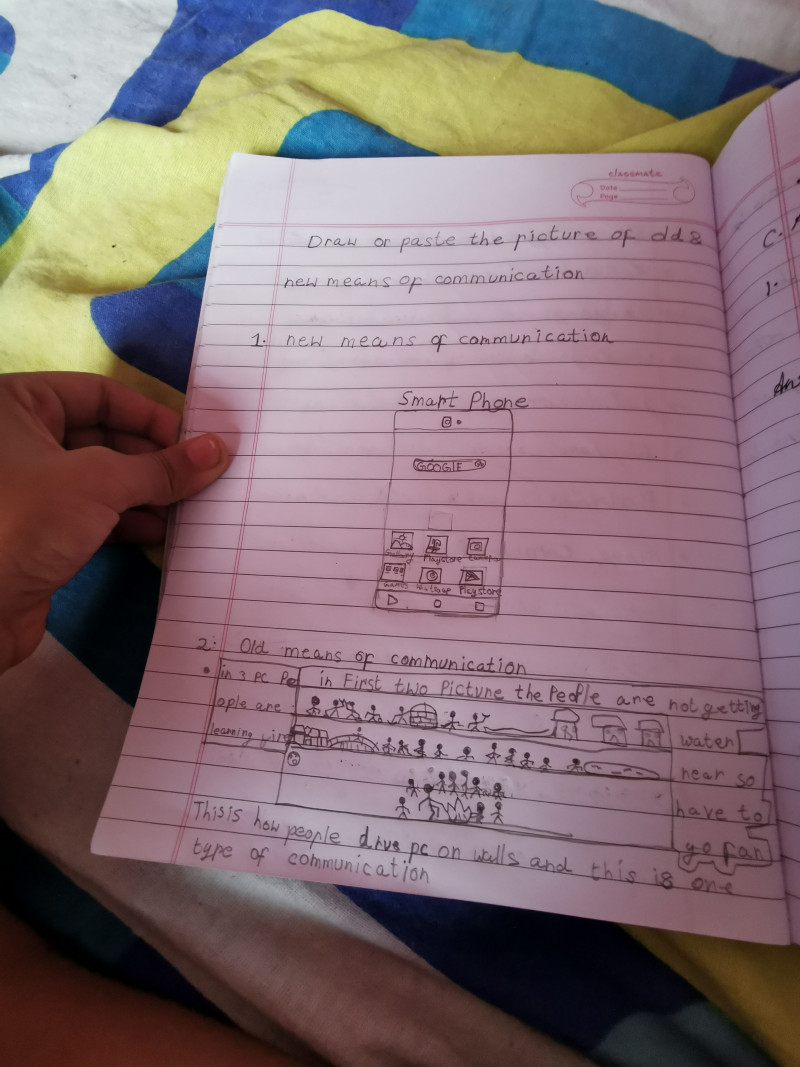 classmate
Date
Page
Draw or paste the picture of old &
new means of communication
1. new means of communication
Smart Phone
GOOGLE
Gallery Playstore
Games Playstore
2. Old means of communication
in 3 pc Pe
ople are
learning
in First two Picture the People are not getting
water
near so
have to
go far
This is how people pc on walls and this is one
type of communication
C.
1.
An